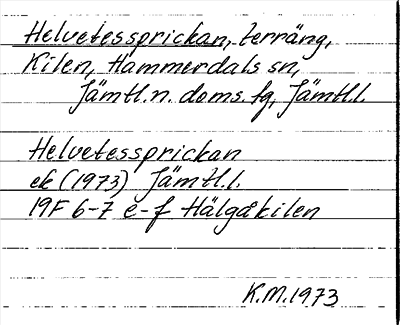 Helvetessprickan, terräng,
Kilen, Hammerdals sn,
Jämtl.n. doms. fg, Jämtl.l.
Helvetessprickan
ek (1973) Jämtl.l.
19F 6-7 e-f Hälgåkilen
K.M.1973